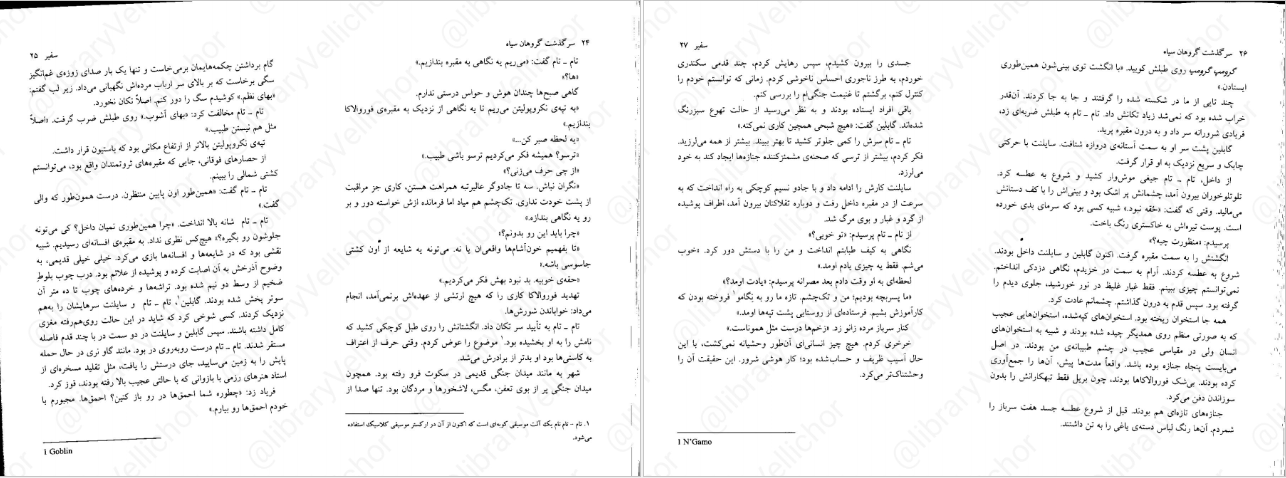 ۲۴ سرگذشت گروهان سیاه
تام – تام گفت: «می‌ریم یه نگاهی به مقبره بندازیم.»
«ها؟»
گاهی صبح‌ها چندان هوش و حواس درستی ندارم.
«یه تپه‌ی نکروپولیتن می‌ریم تا یه نگاهی از نزدیک به مقبره‌ی فوروالاکا
بندازیم.»
«یه لحظه صبر کن...»
«ترسو؟ همیشه فکر می‌کردیم ترسو باشی طبیب.»
«از چی حرف می‌زنی؟»
«نگران نباش. سه تا جادوگر عالیرتبه همراهت هستن، کاری جز مراقبت
از پشت خودت نداری. تک‌چشم هم میاد اما فرمانده ازش خواسته دور و بر
رو یه نگاهی بندازه.»
«چرا باید این رو بدونم؟»
«تا بفهمیم خون‌آشام‌ها واقعی‌ان یا نه. می‌تونه یه شایعه از اون کشتی
جاسوسی باشه.»
«حقه‌ی خوبیه. بد نبود بهش فکر می‌کردیم.»
تهدید فوروالاکا کاری را که هیچ ارتشی از عهده‌اش برنمی‌آمد، انجام
می‌داد: خواباندن شورش‌ها.
تام – تام به تأیید سر تکان داد. انگشتانش را روی طبل کوچکی کشید که
نامش را به او بخشیده بود.۱ موضوع را عوض کردم. وقتی حرف از اعتراف
به کاستی‌ها بود او بدتر از برادرش می‌شد.
شهر به مانند میدان جنگی قدیمی در سکوت فرو رفته بود. همچون
میدان جنگی پر از بوی تعفن، مگس، لاشخورها و مردگان بود. تنها صدا از
۱. تام – تام نام یک آلت موسیقی کوبه‌ای است که اکنون از آن در ارکستر موسیقی کلاسیک استفاده
می‌شود.
سفیر ۲۵
گام برداشتن چکمه‌هایمان برمی‌خاست و تنها یک بار صدای زوزه‌ی غم‌انگیز
سگی برخاست که بر بالای سر ارباب مرده‌اش نگهبانی می‌داد. زیر لب گفتم:
«بهای نظم.» کوشیدم سگ را دور کنم. اصلاً تکان نخورد.
تام – تام مخالفت کرد: «بهای آشوب.» روی طبلش ضرب گرفت. «اصلاً
مثل هم نیستن طبیب.»
تپه‌ی نکروپولیتن بالاتر از ارتفاع مکانی بود که باستیون قرار داشت.
از حصارهای فوقانی، جایی که مقبره‌های ثروتمندان واقع بود، می‌توانستم
کشتی شمالی را ببینم.
تام – تام گفت: «همین‌طور اون پایین منتظرن. درست همون‌طور که والی
گفت.»
تام – تام شانه بالا انداخت. «چرا همین‌طوری نمیان داخل؟ کی می‌تونه
جلوشون رو بگیره؟» هیچ‌کس نظری نداد. به مقبره‌ی افسانه‌ای رسیدیم. شبیه
نقشی بود که در شایعه‌ها و افسانه‌ها بازی می‌کرد. خیلی خیلی قدیمی، به
وضوح آذرخش به آن اصابت کرده و پوشیده از علائم بود. درب چوب بلوط
ضخیم از وسط دو نیم شده بود. تراشه‌ها و خرده‌های چوب تا ده متر آن
سوتر پخش شده بودند. گابلین۱، تام – تام و سایلنت سرهایشان را به‌هم
نزدیک کردند. کسی شوخی کرد که شاید در این حالت روی‌هم‌رفته مغری
کامل داشته باشند. سپس گابلین و سایلنت در دو سمت در با چند قدم فاصله
مستقر شدند. تام – تام درست روبه‌روی در بود. مانند گاو نری در حال حمله
پایش را به زمین می‌سایید، جای درستش را یافت، مثل تقلید مسخره‌ای از
استاد هنرهای رزمی با بازوانی که با حالتی عجیب بالا رفته بودند، قوز کرد.
فریاد زد: «چطوره شما احمق‌ها در رو باز کنین؟ احمق‌ها. مجبورم با
خودم احمق‌ها رو بیارم.»
1 Goblin
۲۶ سرگذشت گروهان سیاه
گرومپ گرومپ روی طبلش کوبید. «با انگشت توی بینی‌شون همین‌طوری
ایستادن.»
چند تایی از ما در شکسته شده را گرفتند و جا به جا کردند. آن‌قدر
خراب شده بود که نمی‌شد زیاد تکانش داد. تام – تام به طبلش ضربه‌ای زد،
فریادی شرورانه سر داد و به درون مقبره پرید.
گابلین پشت سر او به سمت آستانه‌ی دروازه شتافت. سایلنت با حرکتی
چابک و سریع نزدیک به او قرار گرفت.
از داخل، تام – تام جیغی موش‌وار کشید و شروع به عطسه کرد.
تلوتلوخوران بیرون آمد، چشمانش پر اشک بود و بینی‌اش را با کف دستانش
می‌مالید. وقتی که گفت: «حُقه نبود.» شبیه کسی بود که سرمای بدی خورده
است. پوست تیره‌اش به خاکستری رنگ باخت.
پرسیدم: «منظورت چیه؟»
انگشتش را به سمت مقبره گرفت. اکنون گابلین و سایلنت داخل بودند.
شروع به عطسه کردند. آرام به سمت در خزیدم، نگاهی دزدکی انداختم.
نمی‌توانستم چیزی ببینم. فقط غبار غلیظ در نور خورشید، جلوی دیدم را
گرفته بود. سپس قدم به درون گذاشتم. چشمانم عادت کرد.
همه جا استخوان ریخته بود. استخوان‌های کپه‌شده، استخوان‌هایی عجیب
که به صورتی منظم روی همدیگر چیده شده بودند و شبیه به استخوان‌های
انسان ولی در مقیاسی عجیب در چشم طبیبانه‌ی من بودند. در اصل
می‌بایست پنجاه جنازه بوده باشد. واقعاً مدت‌ها پیش، آن‌ها را جمع‌آوری
کرده بودند. بی‌شک فوروالاکاها بودند، چون بریل فقط تبهکارانش را بدون
سوزاندن دفن می‌کرد.
جنازه‌های تازه‌ای هم بودند. قبل از شروع عطسه جسد هفت سرباز را
شمردم. آن‌ها رنگ لباس دسته‌ی یاغی را به تن داشتند.
سفیر ۲۷
جسدی را بیرون کشیدم، سپس رهایش کردم، چند قدمی سکندری
خوردم، به طرز ناجوری احساس ناخوشی کردم. زمانی که توانستم خودم را
کنترل کنم، برگشتم تا غنیمت جنگی‌ام را بررسی کنم.
باقی افراد ایستاده بودند و به نظر می‌رسید از حالت تهوع سبزرنگ
شده‌اند. گابلین گفت: «هیچ شبحی همچین کاری نمی‌کنه.»
تام – تام سرش را کمی جلوتر کشید تا بهتر ببیند. بیشتر از همه می‌لرزید.
فکر کردم، بیشتر از ترسی که صحنه‌ی مشمئزکننده جنازه‌ها ایجاد کند به خود
می‌لرزد.
سایلنت کارش را ادامه داد و با جادو نسیم کوچکی به راه انداخت که به
سرعت از در مقبره داخل رفت و دوباره تقلاکنان بیرون آمد، اطراف پوشیده
از گرد و غبار و بوی مرگ شد.
از تام – تام پرسیدم: «تو خوبی؟»
نگاهی به کیف طبابتم انداخت و من را با دستش دور کرد. «خوب
می‌شم. فقط یه چیزی یادم اومد.»
لحظه‌ای به او وقت دادم بعد مصرانه پرسیدم: «یادت اومد؟»
«ما پسربچه بودیم؛ من و تک‌چشم. تازه ما رو به نِگامو۱ فروخته بودن که
کارآموزش بشیم. فرستاده‌ای از روستایی پشت تپه‌ها اومد.»
کنار سرباز مرده زانو زد. «زخم‌ها درست مثل هموناست.»
خرخری کردم. هیچ چیز انسانی‌ای آن‌طور وحشیانه نمی‌کشت، با این
حال آسیب ظریف و حساب‌شده بود؛ کار هوشی شرور. این حقیقت آن را
وحشتناک‌تر می‌کرد.
1 N'Gamo
@libraryVellichor